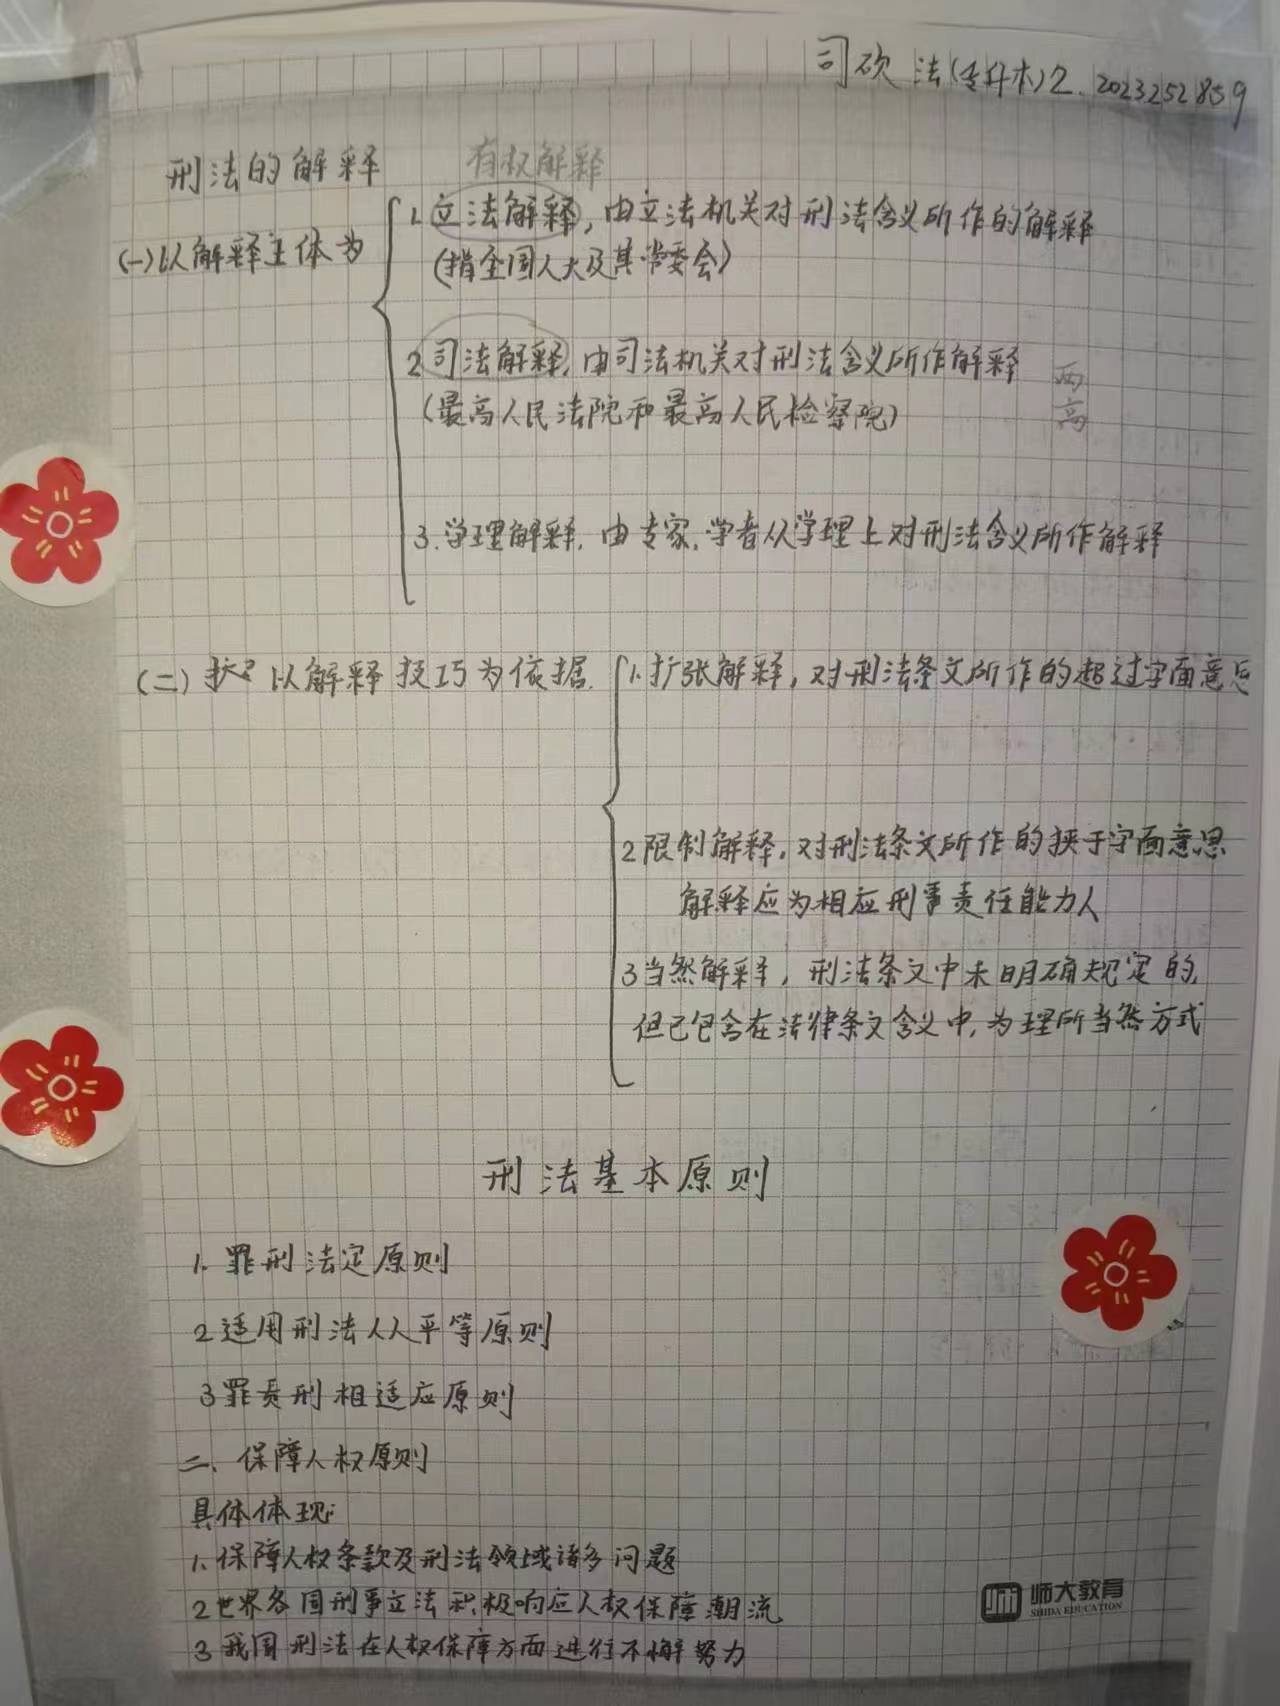 司硕 法(专升本)2. 2023252859
刑法的解释
有权解释
(一)以解释主体为
1.立法解释，由立法机关对刑法含义所作的解释
(指全国人大及其常委会)
2.司法解释，由司法机关对刑法含义所作解释
(最高人民法院和最高人民检察院)
两高
3.学理解释，由专家，学者从学理上对刑法含义所作解释
(二) 以解释技巧为依据.
1.扩张解释，对刑法条文所作的超过字面意思
2限制解释，对刑法条文所作的狭于字面意思
解释应为相应刑事责任能力人
3当然解释，刑法条文中未明确规定的,
但已包含在法律条文含义中,为理所当然方式
刑法基本原则
1.罪刑法定原则
2适用刑法人人平等原则
3罪责刑相适应原则
二、保障人权原则
具体体现:
1.保障人权条款及刑法领域诸多问题
2世界各国刑事立法积极响应人权保障潮流
3我国刑法在人权保障方面进行不懈努力
师大教育
SHIDA EDUCATION